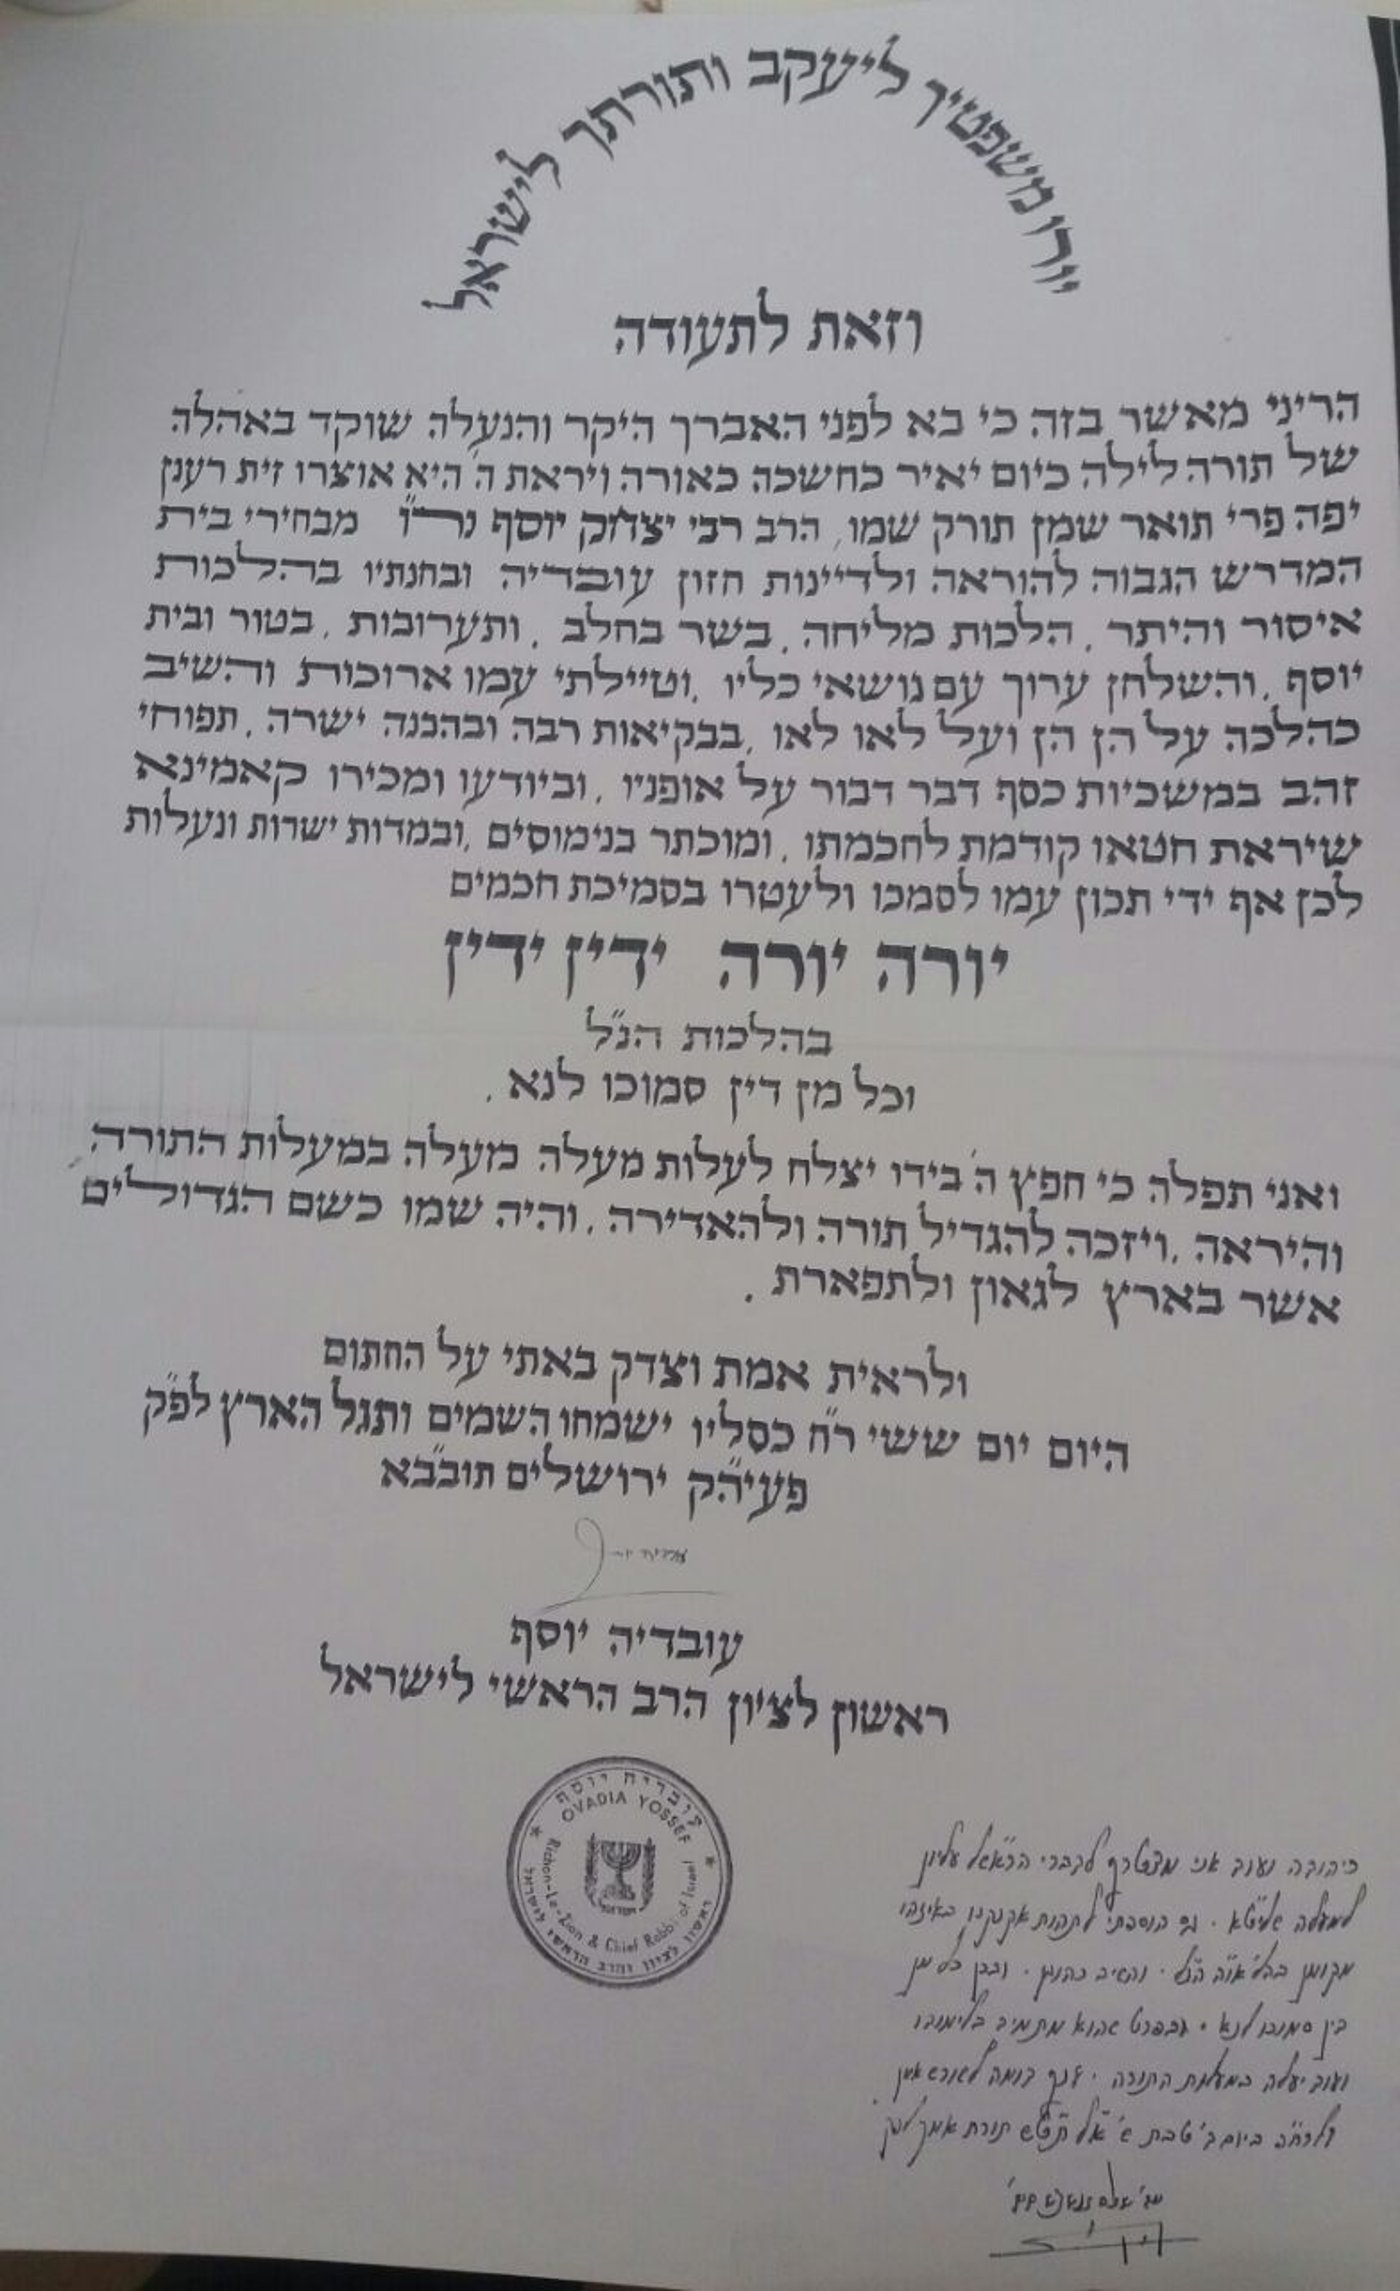 יורו משפטיך ליעקב ותורתך לישראל
וזאת לתעודה
הריני מאשר בזה כי בא לפני האברך היקר והנעלה שוקד באהלה
של תורה לילה כיום יאיר כחשכה כאורה ויראת ה' היא אוצרו זית רענן
יפה פרי תואר שמן תורק שמו, הרב רבי יצחק יוסף נר"ו מבחירי בית
המדרש הגבוה להוראה ולדיינות חזון עובדיה ובחנתיו בהלכות
איסור והיתר, הלכות מליחה, בשר בחלב, ותערובות, בטור ובית
יוסף, והשלחן ערוך עם נושאי כליו, וטיילתי עמו ארוכות והשיב
כהלכה על הן הן ועל לאו לאו, בבקיאות רבה ובהבנה ישרה, תפוחי
זהב במשכיות כסף דבר דבור על אופניו, וביודעו ומכירו קאמינא
שיראת חטאו קודמת לחכמתו, ומוכתר בנימוסים, ובמדות ישרות ונעלות
לכן אף ידי תכון עמו לסמכו ולעטרו בסמיכת חכמים
יורה יורה ידין ידין
בהלכות הנ"ל
וכל מן דין סמוכו לנא.
ואני תפלה כי חפץ ה' בידו יצלח לעלות מעלה מעלה במעלות התורה
והיראה, ויזכה להגדיל תורה ולהאדירה, והיה שמו כשם הגדולים
אשר בארץ לגאון ולתפארת.
ולראית אמת וצדק באתי על החתום
היום יום ששי ר"ח כסליו ישמחו השמים ותגל הארץ לפ"ק
פעיה"ק ירושלים תובב"א
עובדיה יוסף
ראשון לציון הרב הראשי לישראל
עובדיה יוסף
OVADIA YOSSEF
Richon-Le-Zion & Chief Rabbi of Israel
ראשון לציון והרב הראשי לישראל
אני מצטרף לדברי הראש"ל
למעלה שליט"א.
מקומן והשיב כהוגן. וכל מן
דין סמוכו לנא. ובפרט שהוא מתמיד בלימודו
ועוד יעלה במעלות התורה.